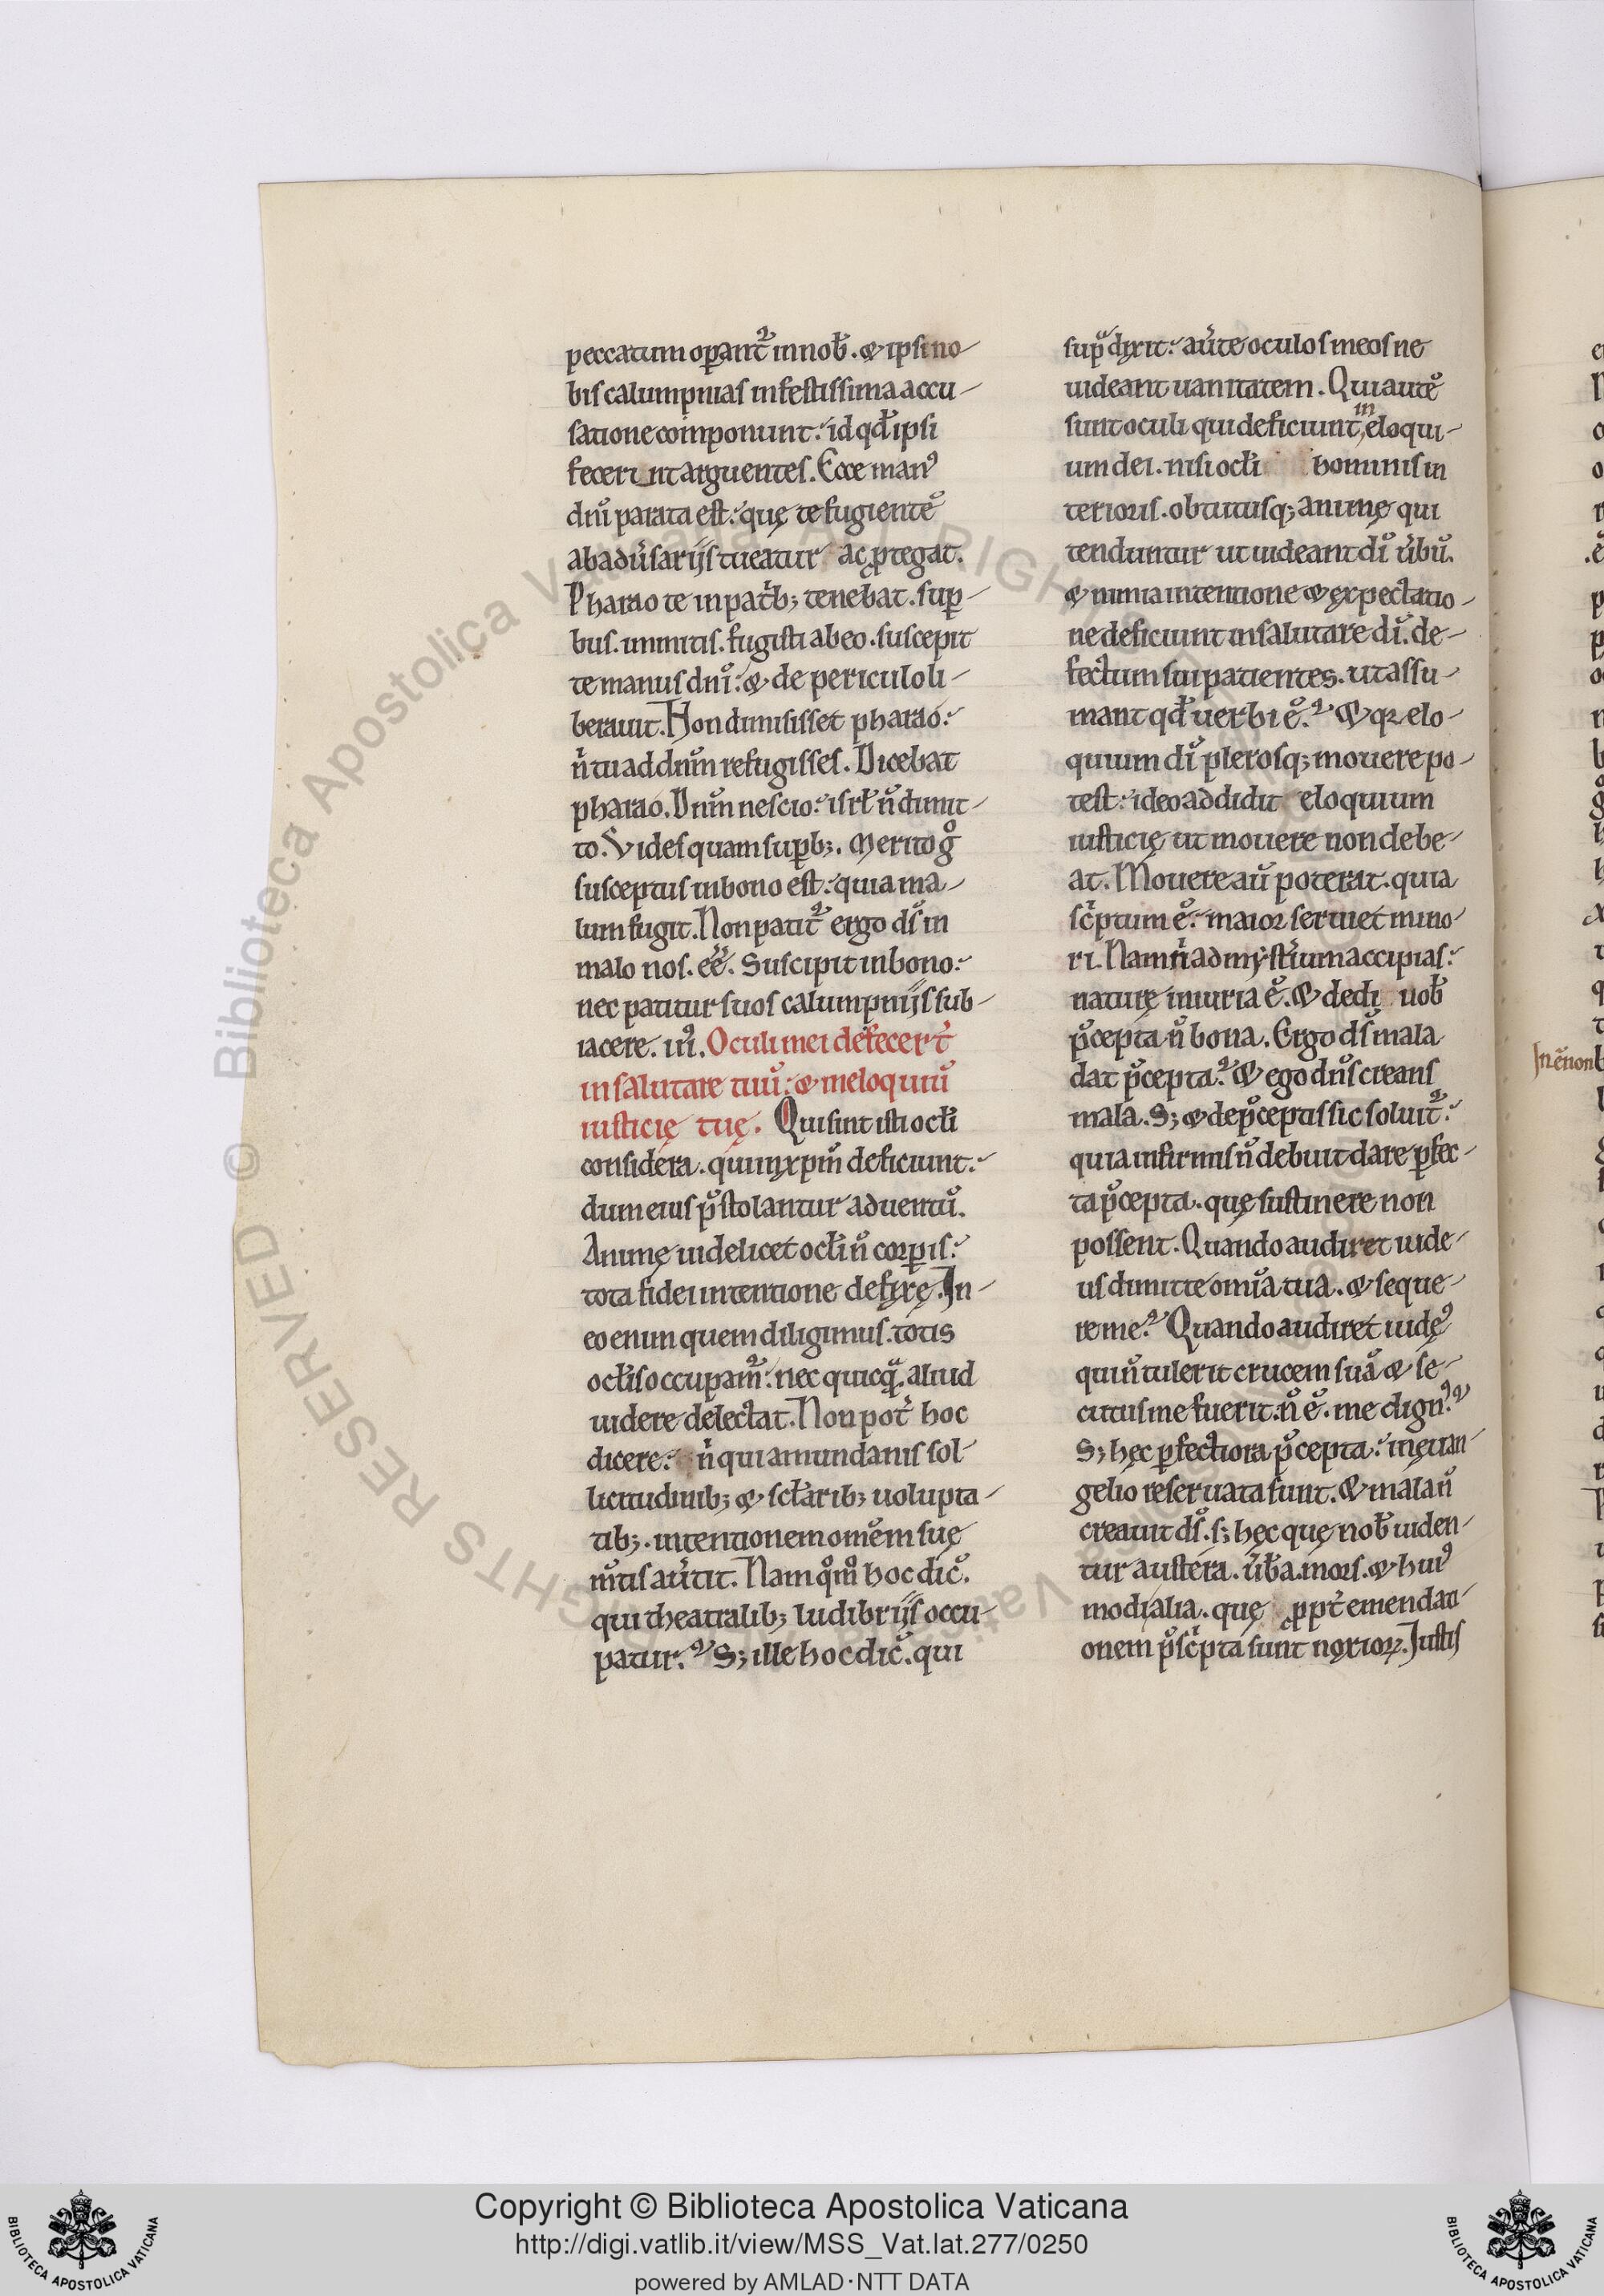 peccatum operant᷑ in nob̃. & ipsi no-
bis calumpnias infestissima accu-
satione componunt: id qđ ipsi
feceri nt arguentes. Ecce manꝰ
dnĩ parata est: quę te fugientẽ
ab adũsarijs tueatur ac ꝓtegat.
Pharao te in patr̃ib; tenebat. suꝑ-
bus. inmitis. fugisti ab eo. suscepit
te manus dnĩ: & de periculo li-
berauit. Non dimisisset pharao:
ñ tu ad dnm̃ refugisses. Dicebat
pharao. Dnm̃ nescio: isrł ñ dimit-
to. Vides quam suꝑb;. Merito gͦ
susceptus in bono est: quia ma-
lum fugit. Non patit᷑ ergo ds̃ in
malo nos. eẽ. Suscipit in bono:
nec patitur suos calumpnijs sub-
iacere. iii. Oculi mei defecer̃t
in salutare tuũ: & in eloquiũ
iusticię tuę. Qui sint isti ocłi
considera. qui in xpm̃ deficiunt:
dum eius p̃stolantur aduentũ.
Animę uidelicet ocłi ñ corꝑis:
tota fidei intentione defixę. In
eo enim quem diligimus. totis
ocłis occupam᷑: nec quicq̃. aliud
uidere delectat. Non pot̃ hoc
dicere: ñ qui a mundanis sol-
licitudinib; & scłarib; uolupta-
tib;. intentionem omẽm suę
m̃tis aũtit. Nam qm̊̃ hoc dic̃.
qui theatralib; ludibrijs occu-
patur? S; ille hoc dic̃. qui
supͣ dixit: aũte oculos meos ne
uideant uanitatem. Qui autẽ
sunt oculi qui deficiunt in eloqui-
um dei. nisi ocłi hominis in
terioris. obtutusq; animę qui
tenduntur ut uideant dĩ ũbũ.
& nimia intentione & expectatio-
ne deficiunt in salutare dĩ. de-
fectum sui patientes. ut assu-
mant qđ uerbi ẽ? Et qꝛ elo-
quium dĩ plerosq; mouere po-
test: ideo addidit eloquium
iusticię ut mouere non debe-
at. Mouere aũ poterat. quia
sc̃ptum ẽ: maior seruiet mino-
ri. Nam ñ ad myst̃ium accipias:
naturę iniuria ẽ. & dedi uob̃
p̃cepta ñ bona. Ergo ds̃ mala
dat p̃cepta? & ego dñs creans
mala. S; & de p̃ceptis sic soluit᷑:
quia infirmis ñ debuit dare ꝑfec-
ta p̃cepta. quę sustinere non
possent. Quando audiret iude-
us dimitte omĩa tua. & seque-
re me? Quando audiret iudęꝰ
qui ñ tulerit crucem suã & se-
cutus me fuerit: ñ ẽ. me dignꝰ?
S; hęc ꝑfectiora p̃cepta: in ęuan-
gelio reseruata sunt. & mala ñ
creauit ds̃. s; hęc quę nob̃ uiden-
tur austera. ũba. mors. & huiꝰ
modi alia. quę ꝓpt̃ emendati-
onem p̃sc̃pta sunt noxioꝝ. Justis
In ẽ non
Copyright © Biblioteca Apostolica Vaticana
http://digi.vatlib.it/view/MSS_Vat.lat.277/0250
powered by AMLAD·NTT DATA
BIBLIOTECA APOSTOLICA VATICANA
BIBLIOTECA APOSTOLICA VATICANA